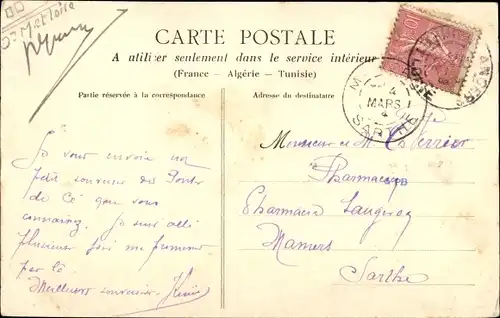 Mst Loire
CARTE POSTALE
A utiliser seulement dans le service intérieur
(France - Algérie - Tunisie)
Partie réservée à la correspondance
Adresse du destinataire
4
MARS
SARTHE
ANGERS
Je vous envoie un
petit souvenir des Ponts
de Cé que vous
connaissez. Je suis allé
plusieurs fois me promener
par là.
Meilleurs souvenirs.
Monsieur et M
Pharmacie
Pharmacie
Mamers
Sarthe